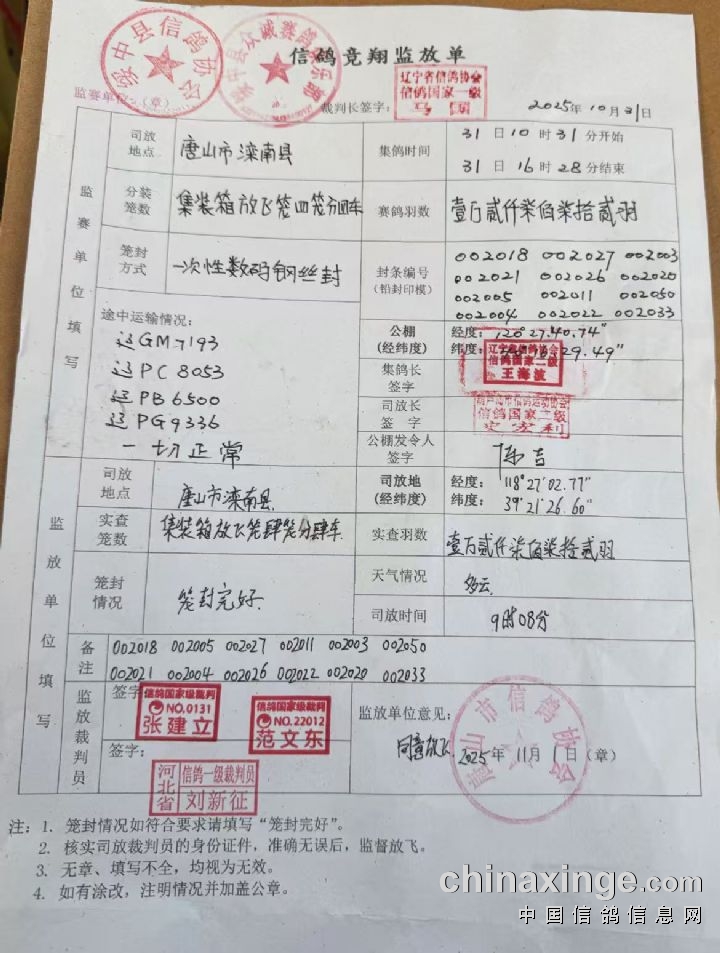 信鸽竞翔监放单
绥中县信鸽协会
绥中县众诚赛鸽俱乐部
监赛单位：（章）
裁判长签字：
辽宁省信鸽协会
信鸽国家一级
2025年10月31日
监赛单位填写
司放地点
唐山市滦南县
集鸽时间
31日10时31分开始
31日16时28分结束
分装笼数
集装箱放飞笼四笼分四车
赛鸽羽数
壹万贰仟柒佰柒拾贰羽
笼封方式
一次性数码钢丝封
封条编号
(铅封印模)
002018 002027 002003
002021 002026 002020
002005 002011 002050
002004 002022 002033
途中运输情况：
辽GM7193
辽PC8053
辽PB6500
辽PG9336
一切正常
公棚
(经纬度)
经度：120°27′40.74″
纬度：29.49″
集鸽长签字
辽宁省信鸽协会
信鸽国家二级
王海波
司放长签字
葫芦岛市信鸽运动协会
信鸽国家二级
史宏利
公棚发令人签字
陈吉
监放单位填写
司放地点
唐山市滦南县
司放地
(经纬度)
经度：118°27′02.77″
纬度：39°21′26.60″
实查笼数
集装箱放飞笼肆笼分肆车
实查羽数
壹万贰仟柒佰柒拾贰羽
笼封情况
笼封完好
天气情况
多云
司放时间
9时08分
备注
002018 002005 002027 002011 002003 002050
002021 002004 002026 002022 002020 002033
监放裁判员
签字：
信鸽国家级裁判
NO.0131
张建立
信鸽国家级裁判
NO.22012
范文东
签字：
河北省
信鸽一级裁判员
刘新征
监放单位意见：
同意放飞
2025年11月1日（章）
唐山市信鸽协会
注：1. 笼封情况如符合要求请填写“笼封完好”。
2. 核实司放裁判员的身份证件，准确无误后，监督放飞。
3. 无章、填写不全，均视为无效。
4. 如有涂改，注明情况并加盖公章。
chinaxinge.com
中国信鸽信息网